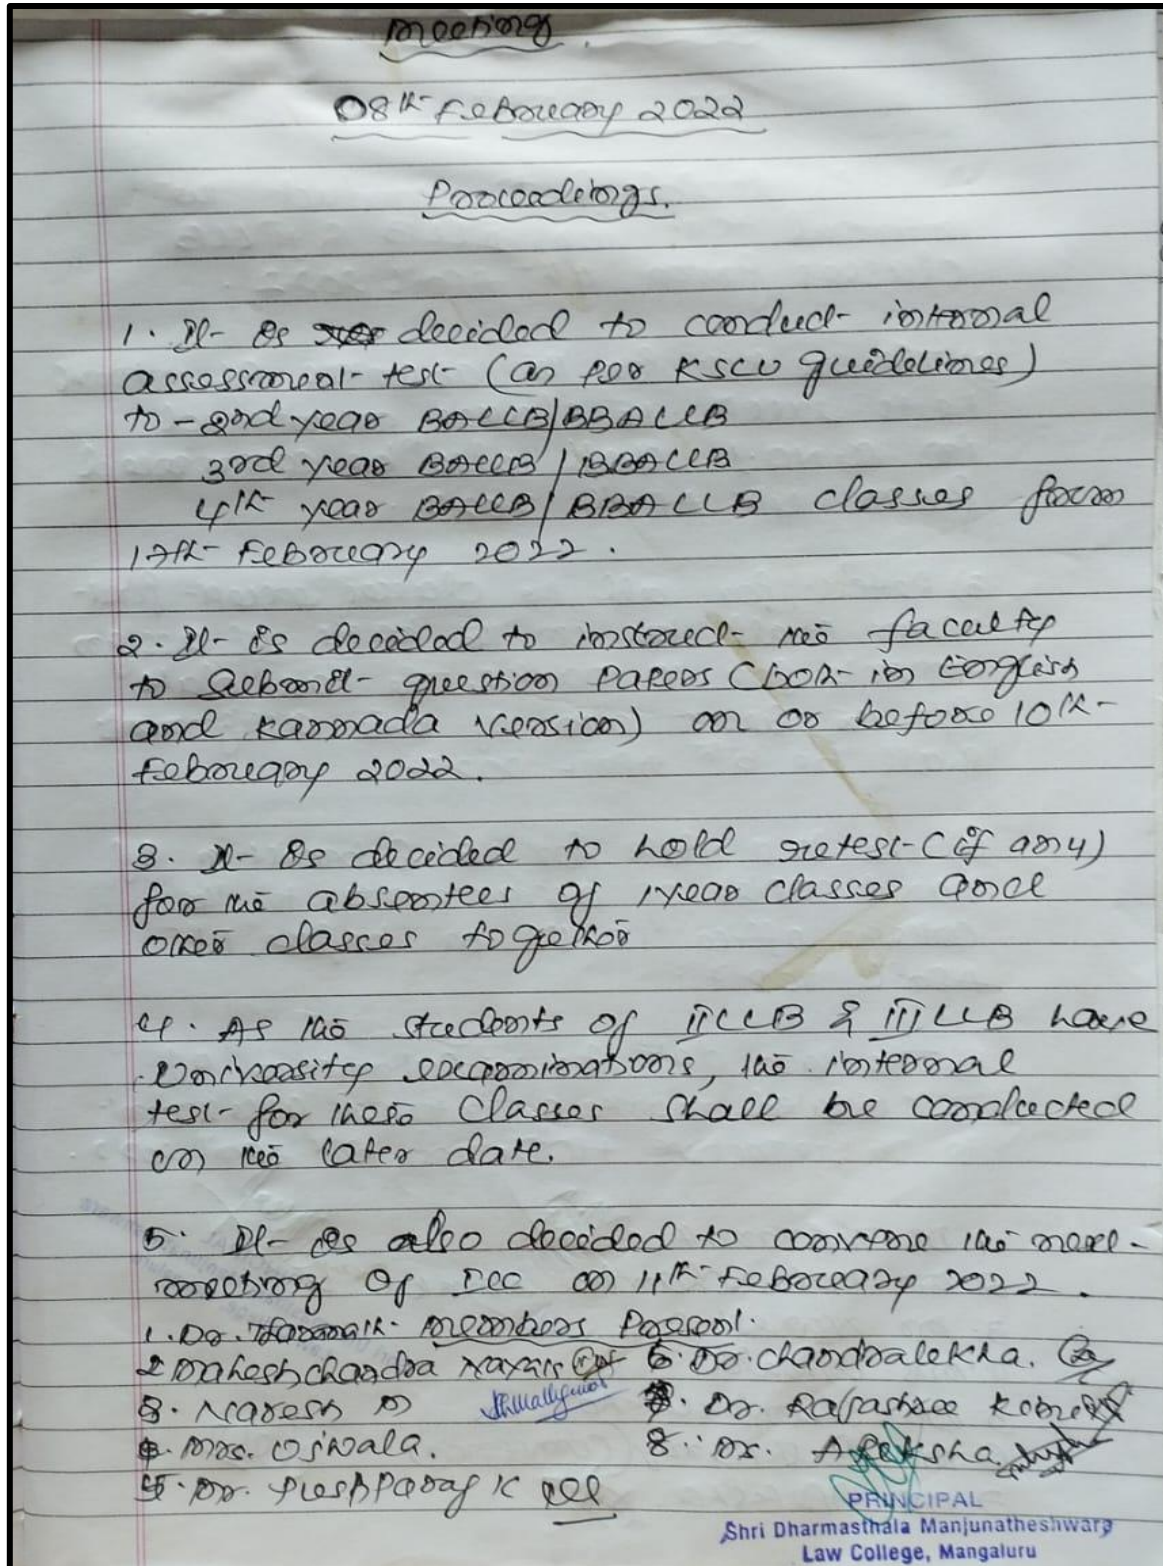 Meeting
08th February 2022
Proceedings.
1. It is decided to conduct internal
assessment test (as per KSLU guidelines)
to - 2nd year BALLB/BBALLB
3rd year BALLB/BBALLB
4th year BALLB/BBALLB classes from
17th February 2022.
2. It is decided to instruct the faculty
to Submit question papers (both in English
and Kannada version) on or before 10th
February 2022.
3. It is decided to hold retest (if any)
for the absentees of I year classes and
other classes together
4. As the students of II LLB & III LLB have
University examinations, the internal
test for these classes shall be conducted
on the later date.
5. It is also decided to convene the next
meeting of ICC on 11th February 2022.
1. Dr. Members Present.
2 Maheshchandra Nayak 6. Dr. Chandralekha.
3. Naresh M 7. Dr. Rajashree
4. Mrs. Ujwala. 8. Dr. Apeksha
5. Dr. Pushparaj K
PRINCIPAL
Shri Dharmasthala Manjunatheshwara
Law College, Mangaluru